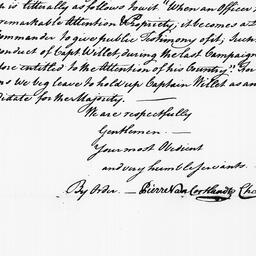 is litterally as follows to wit "When an Officer,
remarkable Attention & Propriety, it becomes a
Commander to give public Testimony of it, Such
conduct of Capt. Willet, during the last Campaign
entitled to the Attention of his Country."
we beg leave to hold up Captain Willet as an
didate for the Majority. —
We are respectfully
Gentlemen —
Your most Obedient
and very humble servants. —
By Order. — Pierre Van Cortlandt Cha